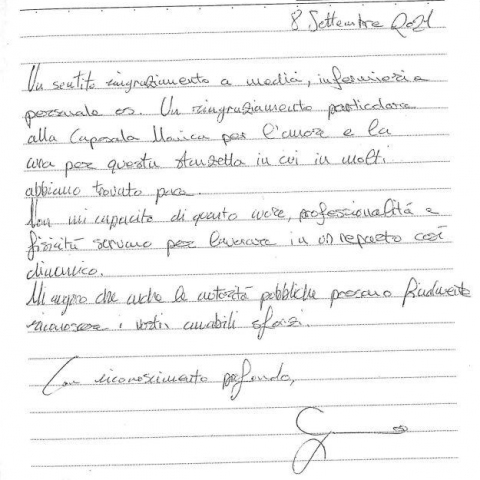 8 Settembre 2021
Un sentito ringraziamento a medici, infermieri e
personale os. Un ringraziamento particolare
alla Caposala Monica per l'amore e la
cura per questa stanzetta in cui in molti
abbiamo trovato pace.
Non mi capacito di quanto cuore, professionalità e
fisicità servano per lavorare in un reparto così
dinamico.
Mi auguro che anche le autorità pubbliche possano finalmente
riconoscere i vostri amabili sforzi.
Con riconoscimento profondo,